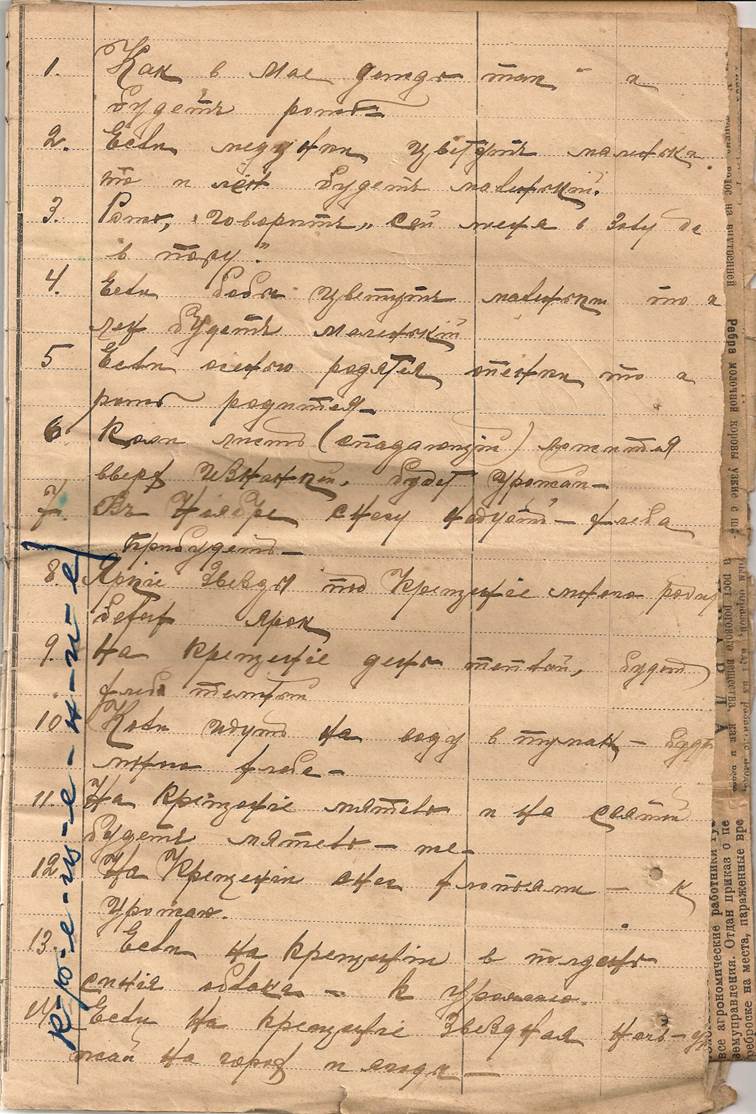 1. Как в мае дождь так и
будетъ рожь
2. Если медунки цвѣтутъ маленьки
то и лён будетъ маленькій.
3. Рожь, "говоритъ" сей меня в золу да
в пору."
4. Если бобы цветутъ маленьки то и
лен будетъ маленькій
5 Если осенью родятся опенки то и
рожь родится
6 Коли листъ (спадающій) ложится
вверх изнанкой, будет урожай
7. Въ Ноябре снегу надуетъ — хлеба
прибудетъ
8. Яркіе звезды под Крещеніе много
белых ярок
9. На крещеніе день теплый, будет
хлеб темный
10 Коли идутъ на воду в туман — будет
много хлеба
11. На Крещеніе мятель и на святой
будетъ мятель
12 На Крещеніи снег хлопьями — к
урожаю.
13. Если на крещеніи в полдень
синія облака — к урожаю.
14 Если на крещеніе звездная ночь — уро
жай на горох и ягоды
к-р-е-щ-е-н-и-е
Ребра молочной коровы
все агрономические работники
земуправления. Отдан приказ о пе
реброске на места, пораженные вре